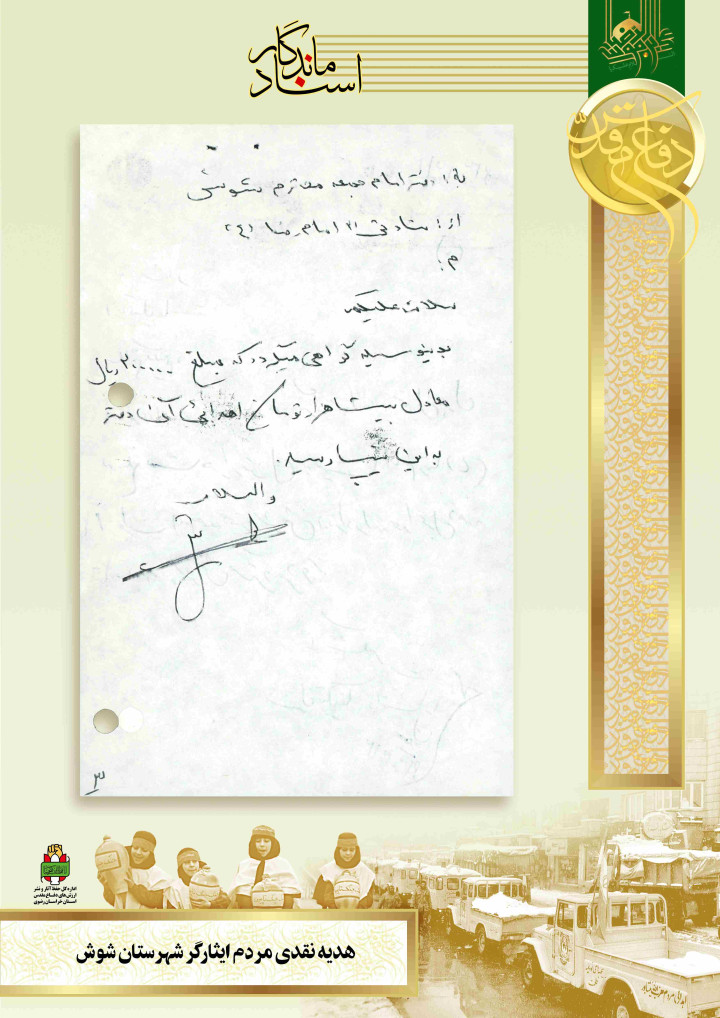 اسناد ماندگار
دفاع مقدس
به: دفتر امام جمعه محترم شوش
از: ستاد تی ۲۱ امام رضا
م:
سلام علیکم
بدینوسیله گواهی میگردد که مبلغ ۲۰۰۰۰۰ ریال
معادل بیست هزار تومان اهدائی آن دفتر
به این تیپ رسید.
والسلام
اداره کل حفظ آثار و نشر
ارزش‌های دفاع مقدس
استان خراسان رضوی
هدیه نقدی مردم ایثارگر شهرستان شوش